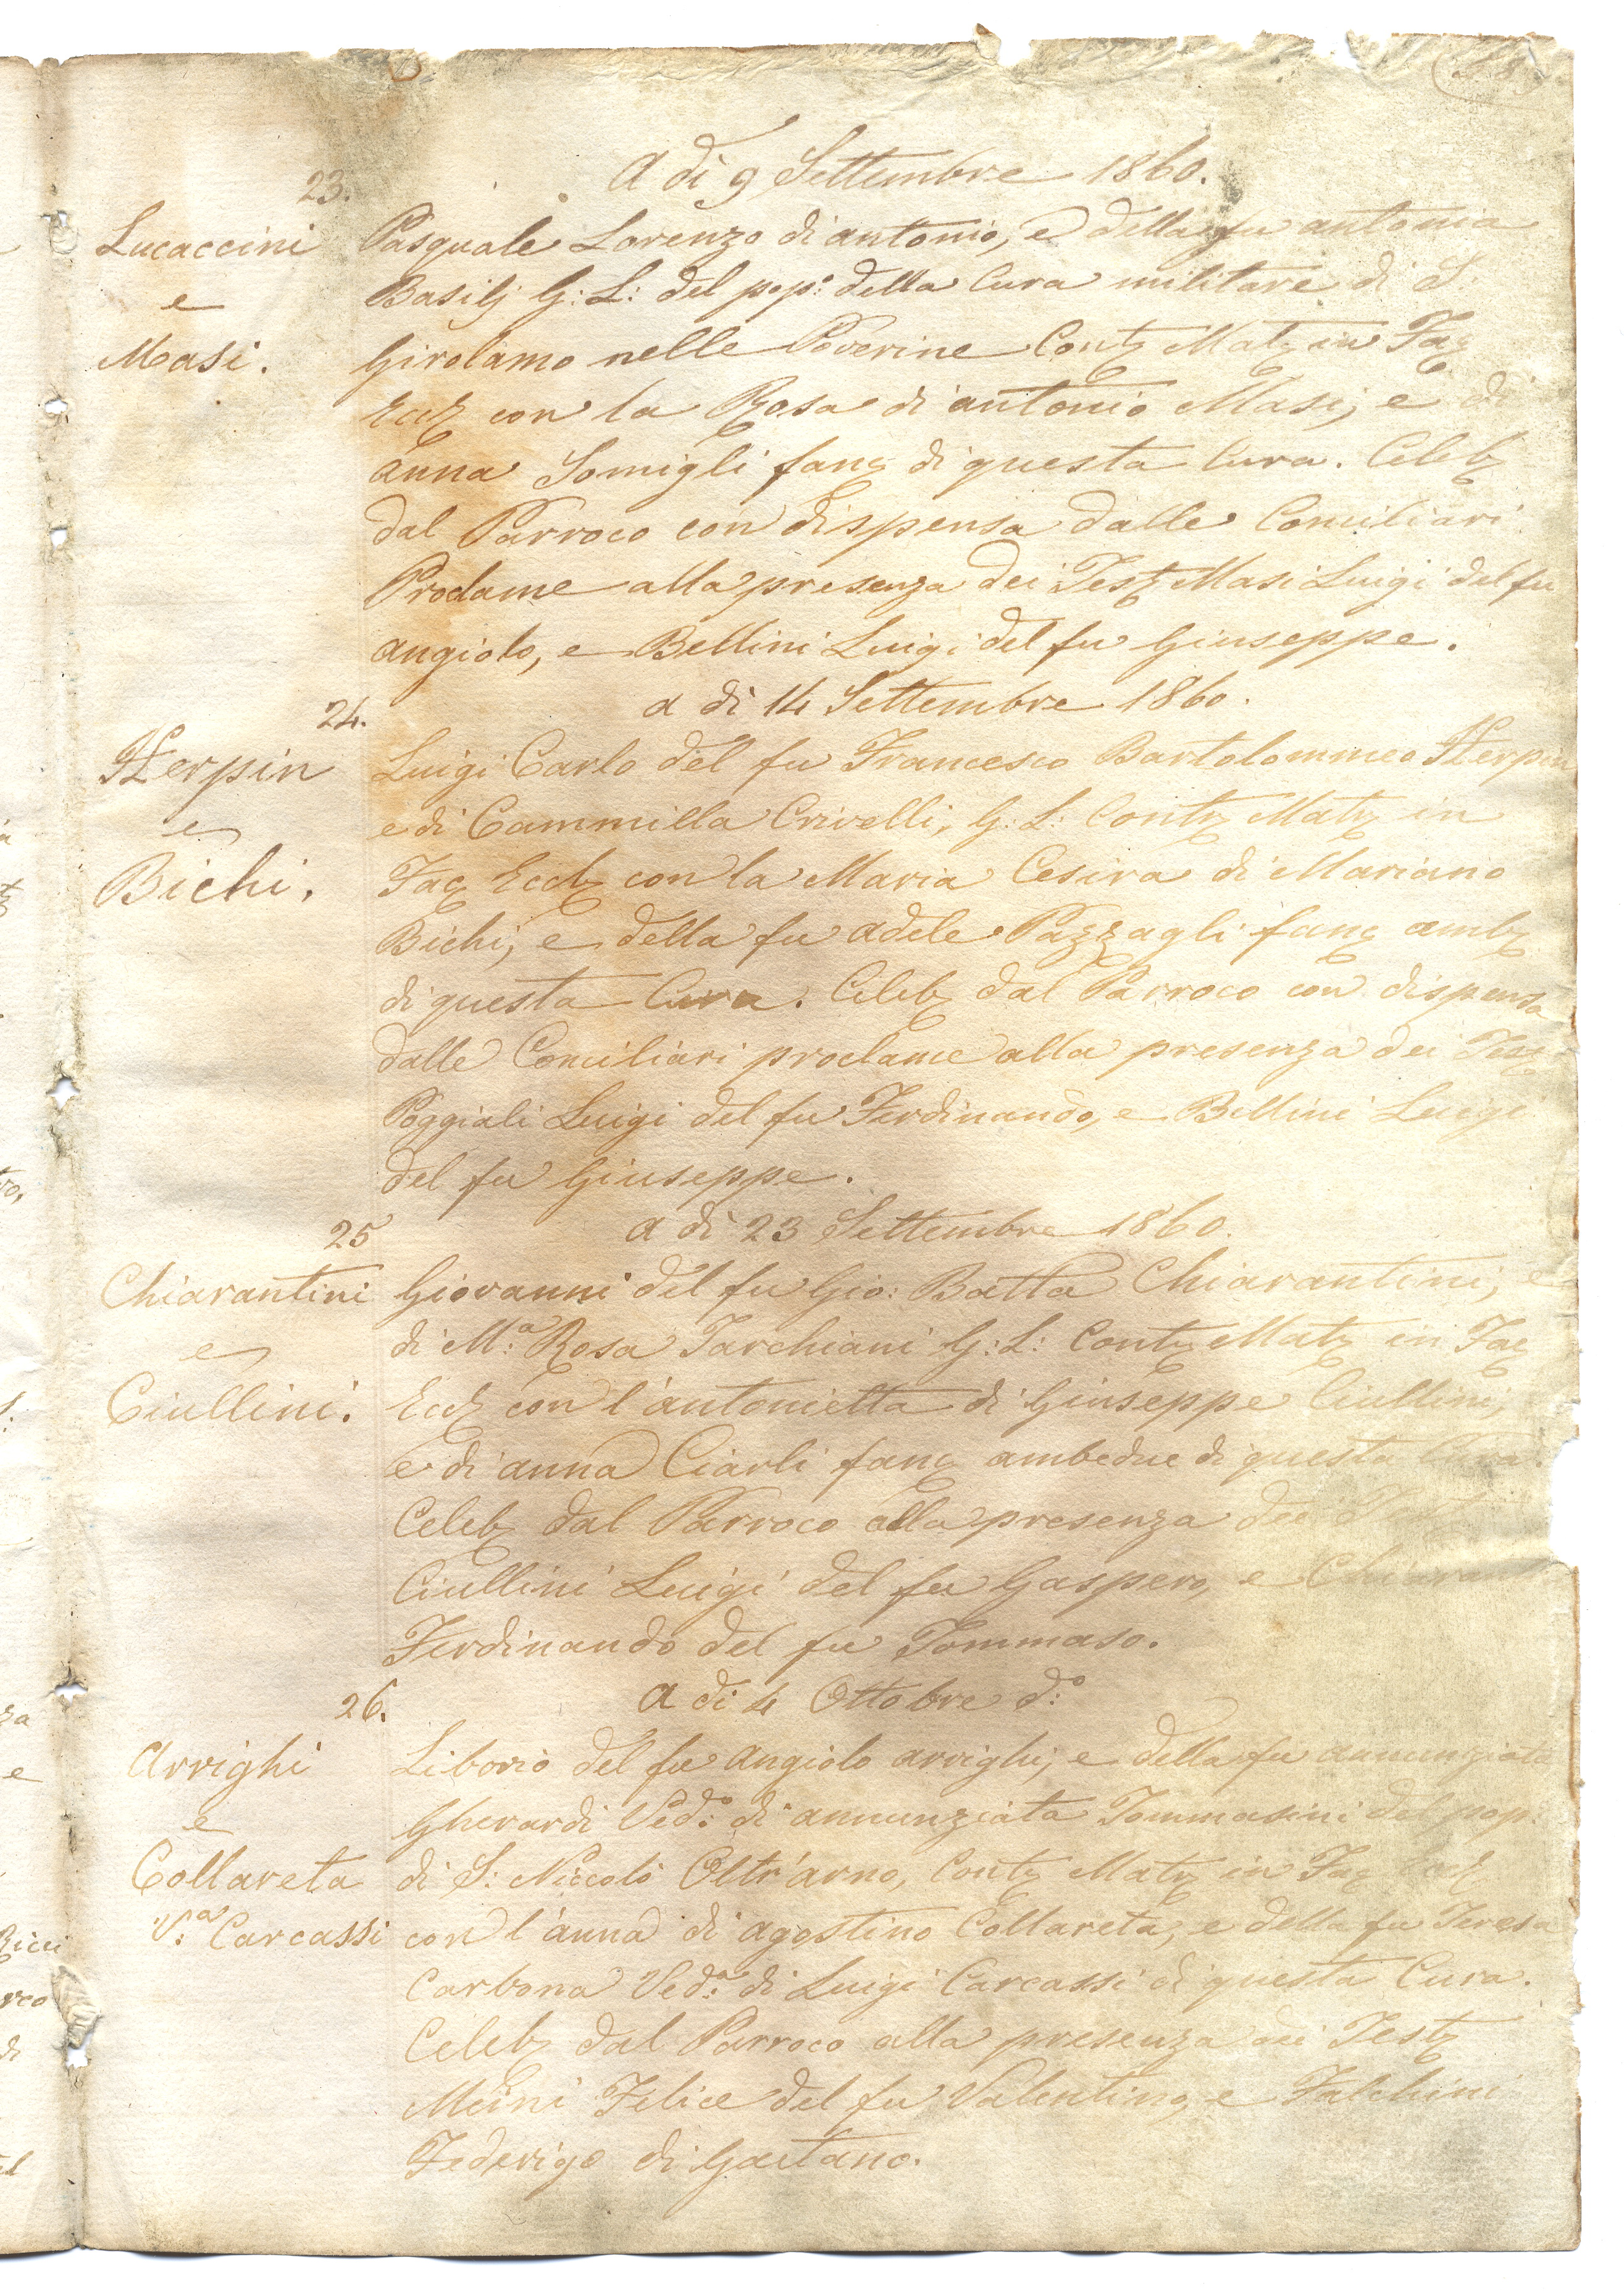 A dì 9 Settembre 1860.
23.
Lucaccini
e
Masi.
Pasquale Lorenzo di antonio, e della fu antonia
Basilj G: L: del pop: della Cura militare di S.
Girolamo nelle Poverine Contz Matz in Facz
Ecclz con la Rosa di antonio Masi, e di
anna Somigli fanc di questa Cura. Celebz
dal Parroco con dispensa dalle Conciliari
Proclame alla presenza dei Testz Masi Luigi del fu
angiolo, e Bellini Luigi del fu Giuseppe.
24.
a dì 14 Settembre 1860.
Herpin
e
Bichi.
Luigi Carlo del fu Francesco Bartolommeo Herpin
e di Cammilla Crivelli, G: L: Contz Matz in
Facz Ecclz con la Maria Cesira di Mariano
Bichi, e della fu adele Pazzagli fanc ambz
di questa Cura. Celebz dal Parroco con dispensa
dalle Conciliari proclame alla presenza dei Testz
Poggiali Luigi del fu Ferdinando, e Bellini Luigi
del fu Giuseppe.
25
a dì 23 Settembre 1860.
Chiarantini
e
Ciullini.
Giovanni del fu Gio: Batta Chiarantini, e
di M:a Rosa Tarchiani G: L: Contz Matz in Facz
Ecclz con l'antonietta di Giuseppe Ciullini,
e di anna Ciarli fanc ambedue di questa Cura.
Celebz dal Parroco alla presenza dei
Ciullini Luigi del fu Gaspero, e
Ferdinando del fu Tommaso.
26.
A dì 4 Ottobre d:o
Arrighi
e
Collareta
V:a Carcassi
Liborio del fu angiolo arrighi, e della fu annunziata
Gherardi Ved:o di annunziata Tommasini del pop:
di S: Niccolò Oltr'arno, Contz Matz in Facz Ecclz
con l'anna di agostino Collareta, e della fu Teresa
Carbona Ved:a di Luigi Carcassi di questa Cura.
Celebz dal Parroco alla presenza dei Testz
Meini Felice del fu Valentino, e Falchini
Federigo di Gaetano.